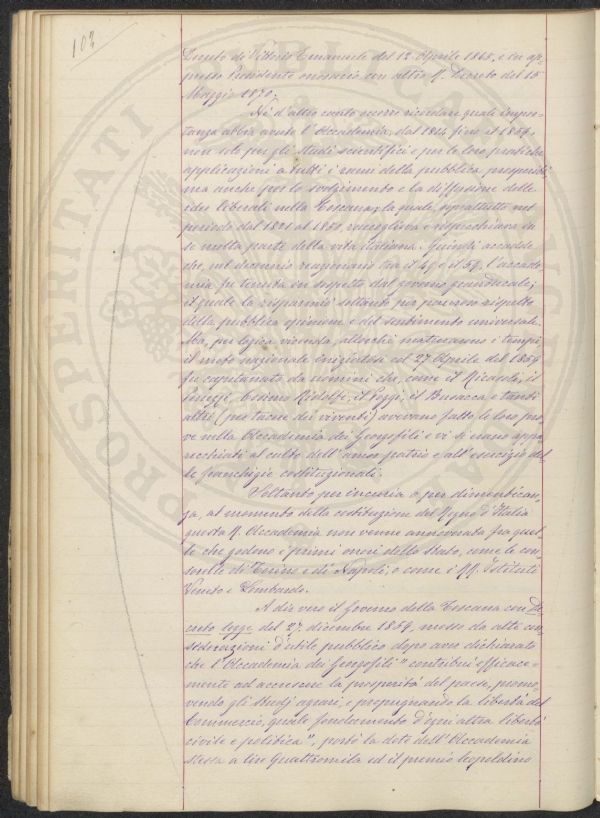 102
Decreto di Vittorio Emanuele del 12 Aprile 1865, e in ap-
presso Presidente onorario con altro R. Decreto del 15
Maggio 1870.
Nè d'altro canto occorre ricordare quale impor-
tanza abbia avuto l'Accademia, dal 1814 fino al 1859,
non solo per gli studi scientifici e per le loro pratiche
applicazioni a tutti i rami della pubblica prosperità
ma anche per lo svolgimento e la diffusione delle
idee liberali nella Toscana; la quale, soprattutto nel
periodo dal 1821 al 1850, raccoglieva e rispecchiava in
se molta parte della vita italiana. Quindi accadde
che, nel decennio reazionario tra il 49 e il 59, l'Accade
mia fu tenuta in sospetto dal governo granducale;
il quale la risparmiò soltanto per pauroso rispetto
della pubblica opinione e del sentimento universale.
Ma, per logica vicenda, allorchè maturarono i tempi,
il moto nazionale iniziatosi col 27 Aprile del 1859
fu capitanato da uomini che, come il Ricasoli, il
Peruzzi, Cosimo Ridolfi, il Poggi, il Busacca e tanti
altri (per tacere dei viventi) avevano fatto le loro pro
ve nella Accademia dei Georgofili e vi si erano appa
recchiati al culto dell'amor patrio e all'esercizio del
le franchigie costituzionali.
Soltanto per incuria o per dimentican-
za, al momento della costituzione del Regno d'Italia
questa R. Accademia non venne annoverata fra quel
le che godono i primi onori dello Stato, come le con
sorelle di Torino e di Napoli, o come i RR. Istituti
Veneto e Lombardo.
A dir vero il Governo della Toscana con De
creto legge del 27 dicembre 1859, mosso da alte con
siderazioni d'utile pubblico dopo aver dichiarato
che l'Accademia dei Georgofili "contribuì efficace=
mente ad accrescere la prosperità del paese, promo-
vendo gli studj agrari, e propugnando la libertà del
Commercio, quale fondamento d'ogni altra libertà
civile e politica", portò la dote dell'Accademia
stessa a lire quattromila ed il premio leopoldino
PROSPERITATI PUBLICAE AUGENDAE